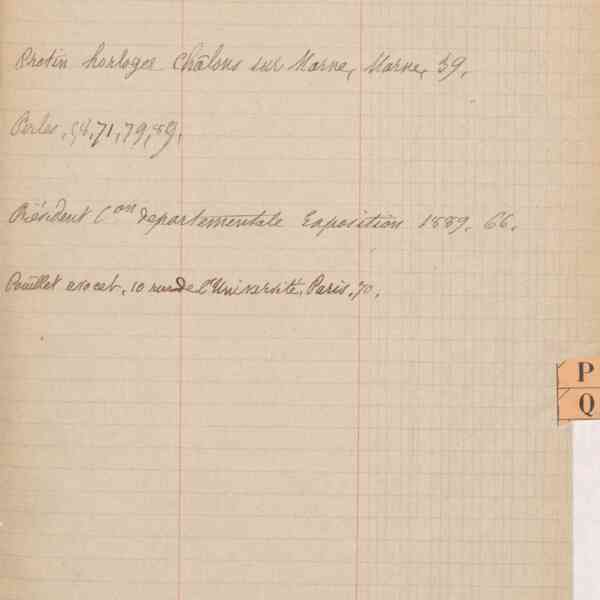 Protin horloger Châlons sur Marne, Marne, 39.
Perles, 58, 71, 79, 89.
Président Con départementale Exposition 1889. 66.
Pouillet avocat, 10 rue de l'Université, Paris, 70.
P
Q